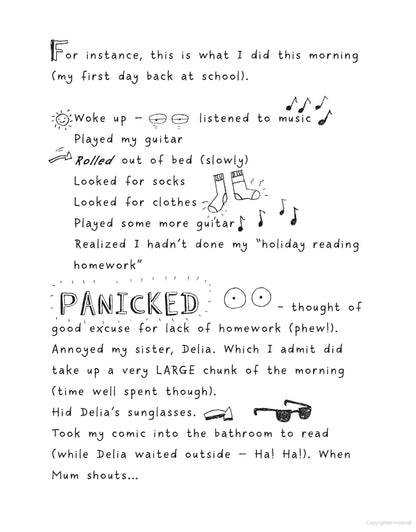 For instance, this is what I did this morning
(my first day back at school).
Woke up – listened to music
Played my guitar
Rolled out of bed (slowly)
Looked for socks
Looked for clothes
Played some more guitar
Realized I hadn't done my "holiday reading
homework"
PANICKED – thought of
good excuse for lack of homework (phew!).
Annoyed my sister, Delia. Which I admit did
take up a very LARGE chunk of the morning
(time well spent though).
Hid Delia's sunglasses.
Took my comic into the bathroom to read
(while Delia waited outside – Ha! Ha!). When
Mum shouts...
Copyrighted material